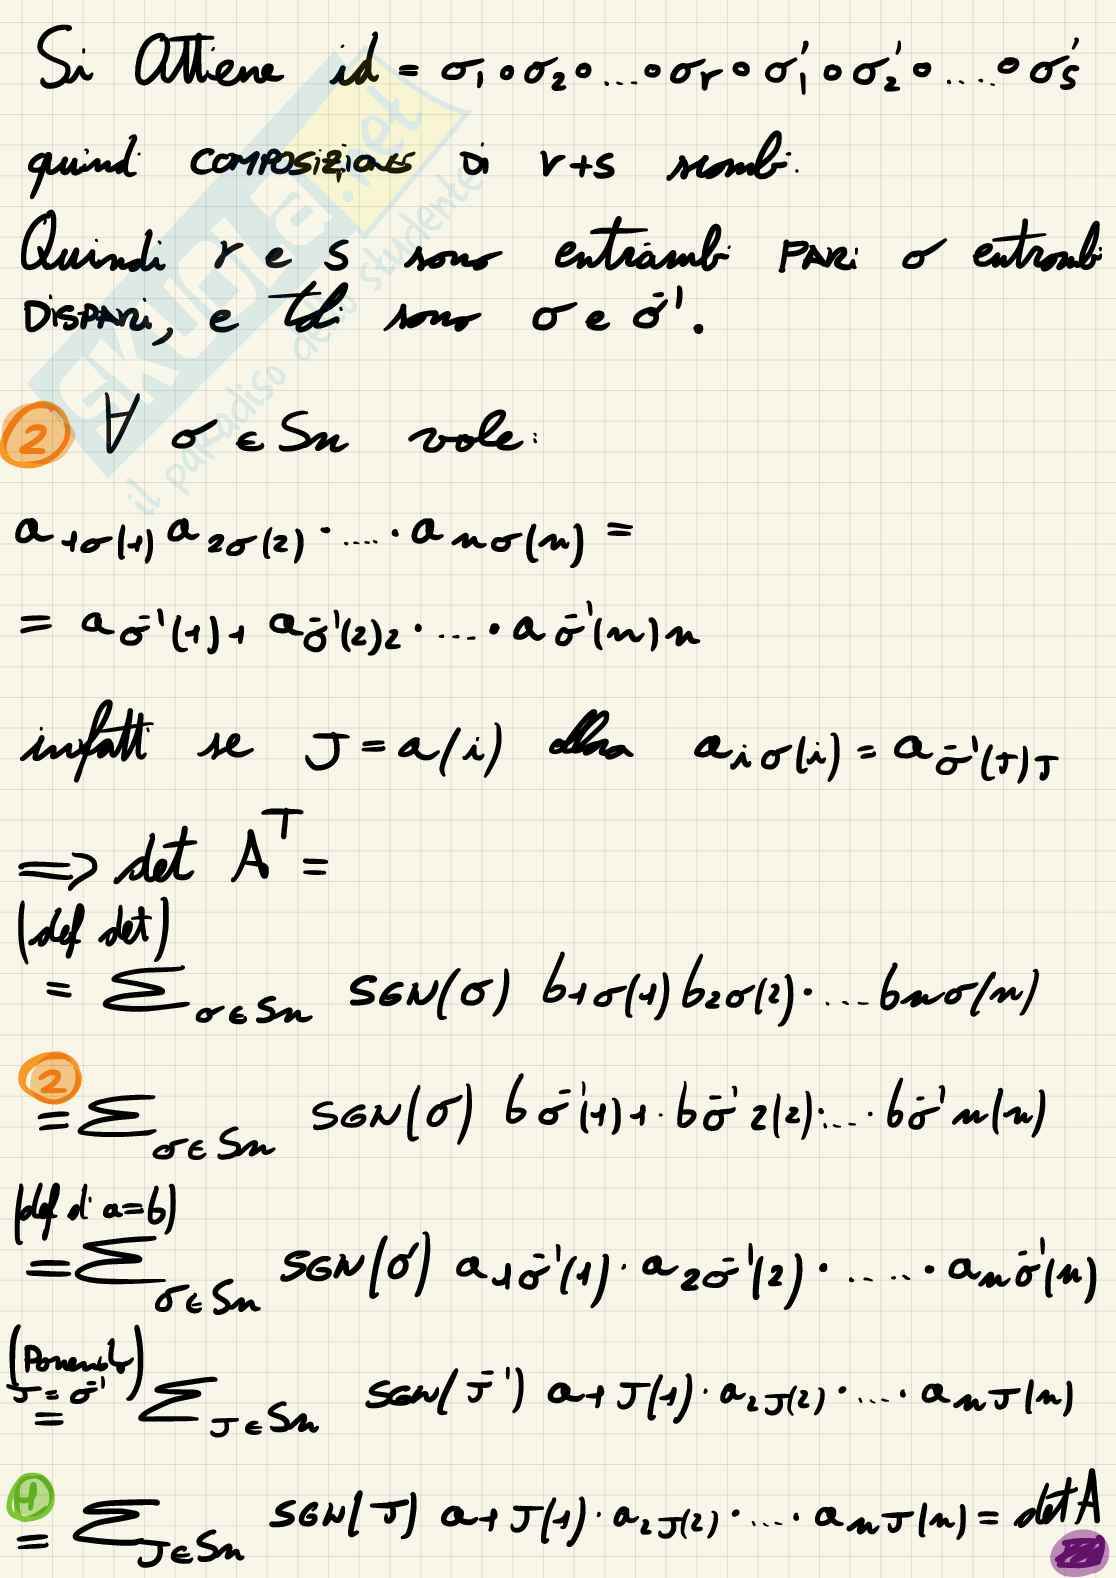 Si ottiene id = σ₁∘σ₂∘...∘σr∘σ₁'∘σ₂'∘....∘σs'
quindi COMPOSIZIONE DI r+s scambi.
Quindi r e s sono entrambi PARI o entrambi
DISPARI, e tali sono σ e σ⁻¹.
② ∀ σ ∈ Sn vale:
a₁σ(1) a₂σ(2) · .... · a nσ(n) =
= a σ⁻¹(1)1 a σ⁻¹(2)2 · .... · a σ⁻¹(n)n
infatti se J = a(i) allora a iσ(i) = a σ⁻¹(J)J
=> det Aᵀ =
(def det)
= Σ σ∈Sn SGN(σ) b₁σ(1) b₂σ(2) · .... b nσ(n)
②
= Σ σ∈Sn SGN(σ) b σ⁻¹(1)1 · b σ⁻¹ 2(2) · .... · b σ⁻¹ n(n)
(def di a=b)
= Σ σ∈Sn SGN(σ) a₁σ⁻¹(1) · a₂σ⁻¹(2) · ..... · a nσ⁻¹(n)
(Ponendo
J = σ⁻¹)
= Σ J∈Sn SGN(J⁻¹) a₁J(1) · a₂J(2) · .... · a nJ(n)
①
= Σ J∈Sn SGN(J) a₁J(1) · a₂J(2) · .... · a nJ(n) = det A
SKUOLA.net
il paradiso dello studente